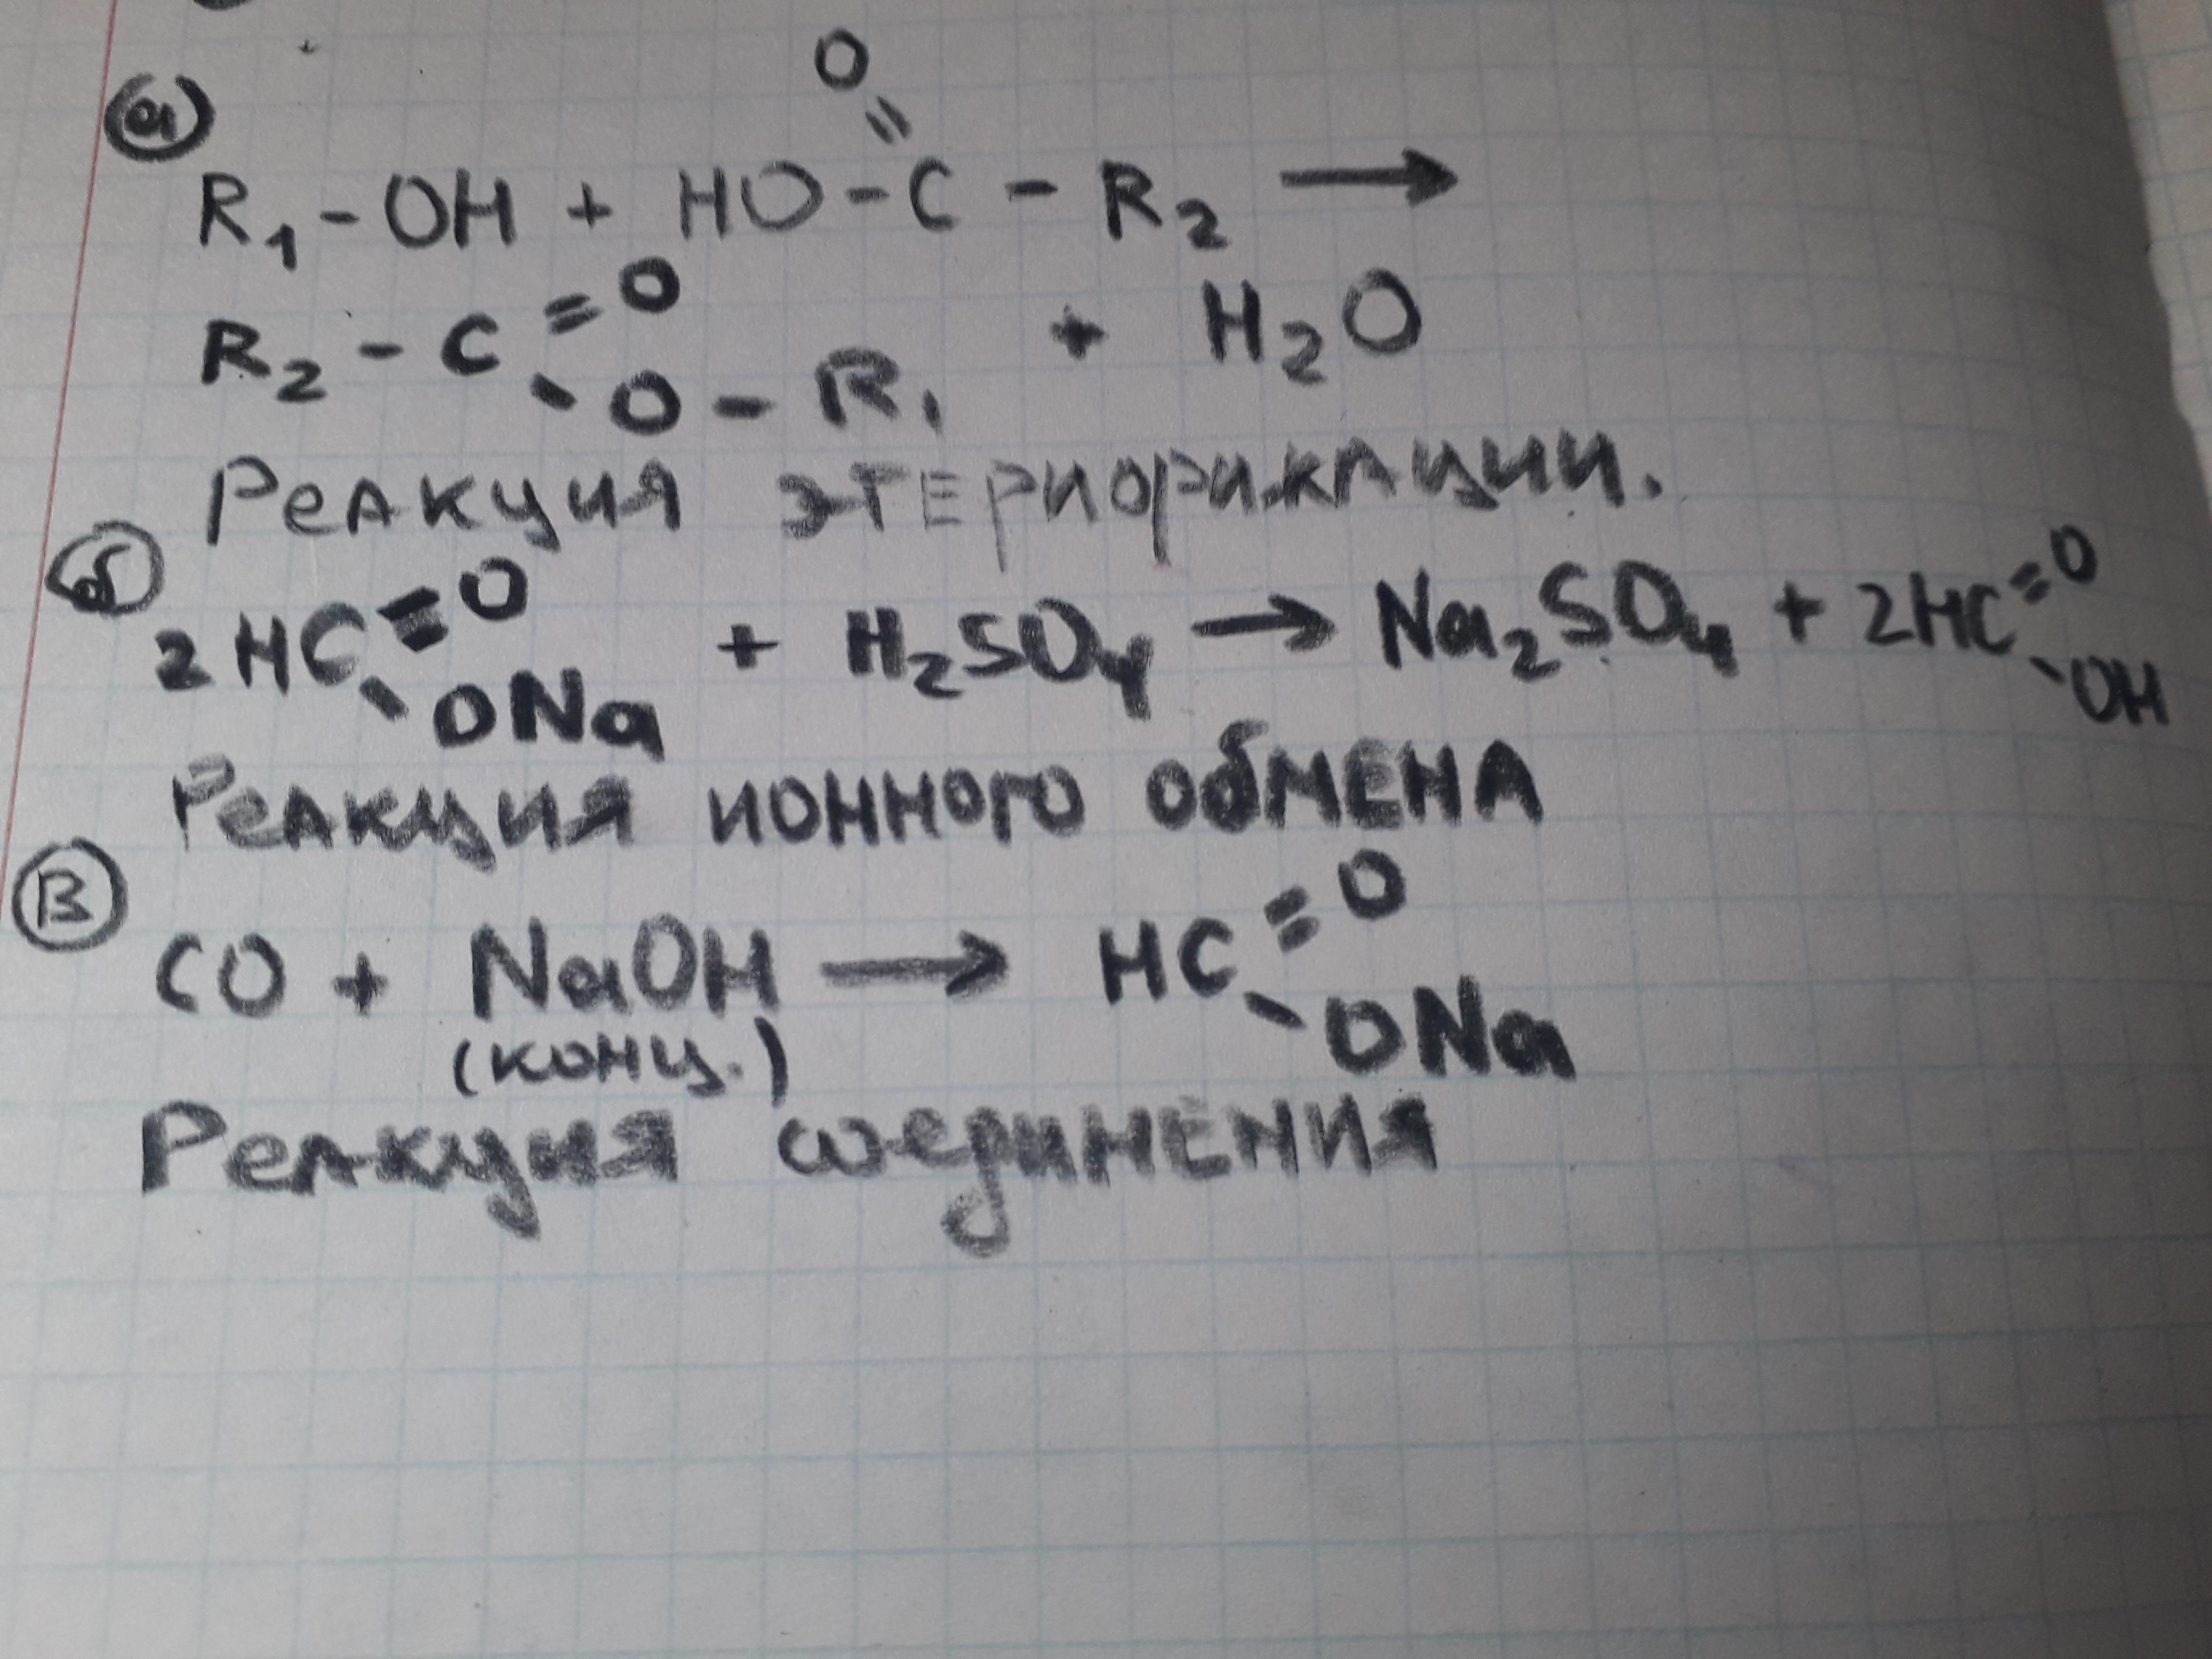 а)
O
R₁-OH + HO-C-R₂ →
R₂-C=O + H₂O
-O-R₁
Реакция этерификации.
б)
2HC=O + H₂SO₄ → Na₂SO₄ + 2HC=O
-ONa -OH
Реакция ионного обмена
В
CO + NaOH → HC=O
(конц.) -ONa
Реакция соединения